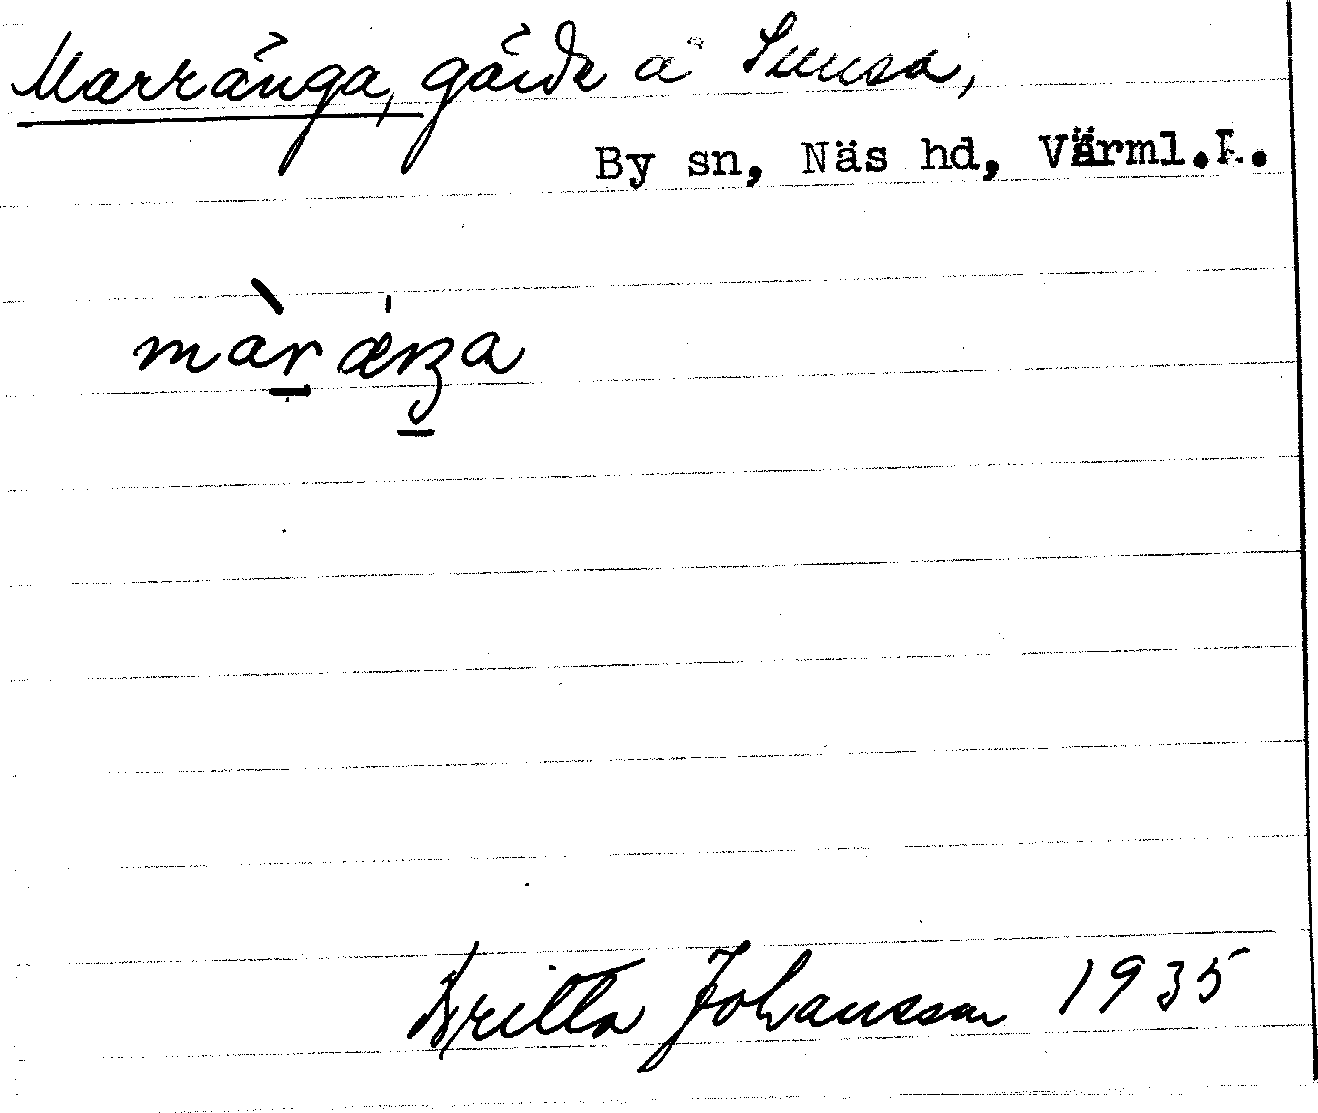 Marränga, gärde å Smnsa,
By sn, Näs hd, Värml.l.
màrǽŋa
Britta Johansson 1935